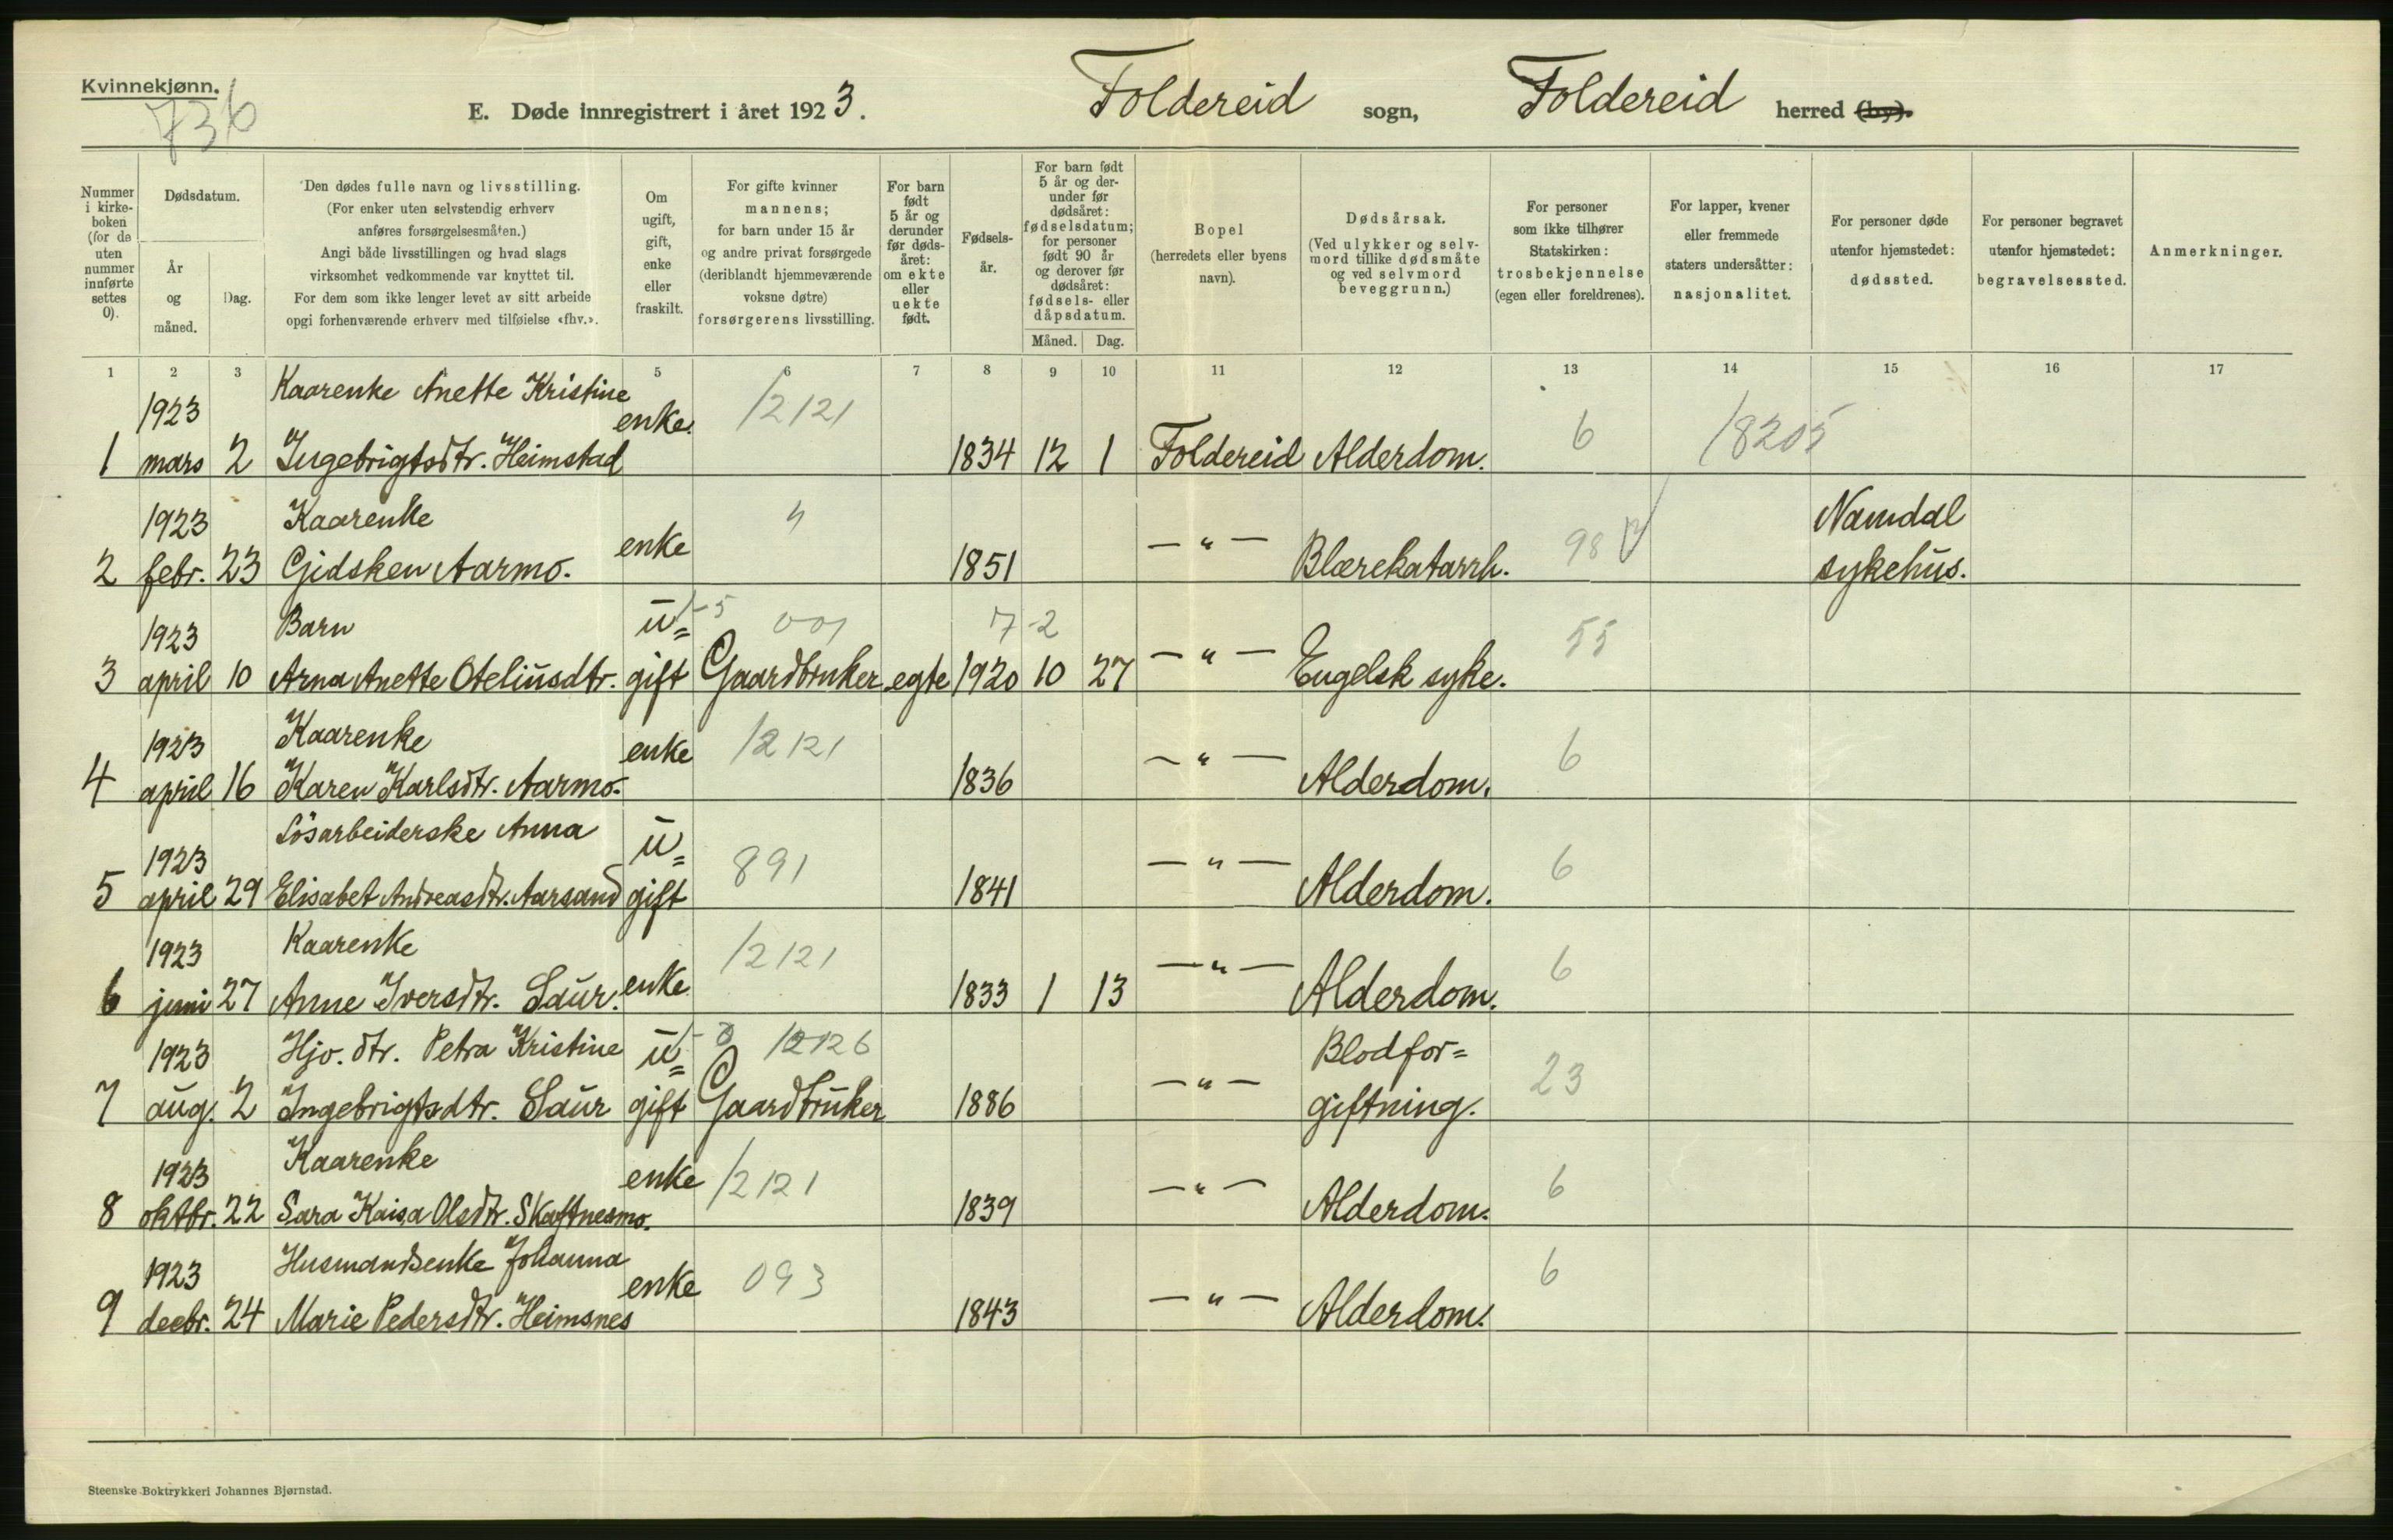 Kvinnekjønn.
736
E. Døde innregistrert i året 1923. Foldereid sogn, Foldereid herred (by).
Nummer i kirke-boken (for de uten nummer innførte settes 0).
Dødsdatum.
År og måned.
Dag.
Den dødes fulle navn og livsstilling.
(For enker uten selvstendig erhverv
anføres forsørgelsesmåten.)
Angi både livsstillingen og hvad slags
virksomhet vedkommende var knyttet til.
For dem som ikke lenger levet av sitt arbeide
opgi forhenværende erhverv med tilføielse «fhv.».
Om ugift, gift, enke eller fraskilt.
For gifte kvinner
mannens;
for barn under 15 år
og andre privat forsørgede
(deriblandt hjemmeværende
voksne døtre)
forsørgerens livsstilling.
For barn født 5 år og derunder før dødsåret: om ekte eller uekte født.
Fødsels-år.
For barn født
5 år og der-
under før
dødsåret:
fødselsdatum;
for personer
født 90 år
og derover før
dødsåret:
fødsels- eller
dåpsdatum.
Måned. Dag.
Bopel
(herredets eller byens
navn).
Dødsårsak.
(Ved ulykker og selv-
mord tillike dødsmåte
og ved selvmord
beveggrunn.)
For personer
som ikke tilhører
Statskirken:
trosbekjennelse
(egen eller foreldrenes).
For lapper, kvener
eller fremmede
staters undersåtter:
nasjonalitet.
For personer døde
utenfor hjemstedet:
dødssted.
For personer begravet
utenfor hjemstedet:
begravelsessted.
Anmerkninger.
1 2 3 5 6 7 8 9 10 11 12 13 14 15 16 17
1923 Kaarenke Anette Kristine enke. 12121 6 18205
1 mars 2 Ingebrigtsdtr. Heimstad 1834 12 1 Foldereid Alderdom.
1923 Kaarenke enke " — " — 98 Namdal
2 febr. 23 Gidsken Aarmo. 1851 Blærekatarrh. sykehus.
1923 Barn u= 1-5 001 7-2 — " — 55
3 april 10 Arna Anette Oteliusdtr. gift Gaardbruker egte 1920 10 27 Engelsk syke.
1923 Kaarenke enke 12121 — " — 6
4 april 16 Karen Karlsdtr. Aarmo. 1836 Alderdom.
1923 Løsarbeiderske Anna u= 891 — " — 6
5 april 29 Elisabet Andreasdtr. Aarsand gift 1841 Alderdom.
1923 Kaarenke enke. 12121 — " — 6
6 juni 27 Anne Iversdtr. Saur. 1833 1 13 Alderdom.
1923 Hjv. dtr. Petra Kristine u= 12126 — " — Blodfor= 23
7 aug. 2 Ingebrigtsdtr. Saur gift Gaardbruker 1886 giftning.
1923 Kaarenke enke 12121 — " — 6
8 oktbr. 22 Sara Kaisa Olsdtr. Skaftnesmo. 1839 Alderdom.
1923 Husmandsenke Johanna enke 093 — " — 6
9 decbr. 24 Marie Pedersdtr. Heimsnes 1843 Alderdom.
Steenske Boktrykkeri Johannes Bjørnstad.